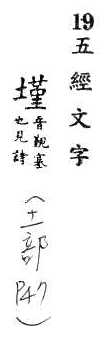 19
五經文字
墐音覲塞
也見詩
(土部
P47)